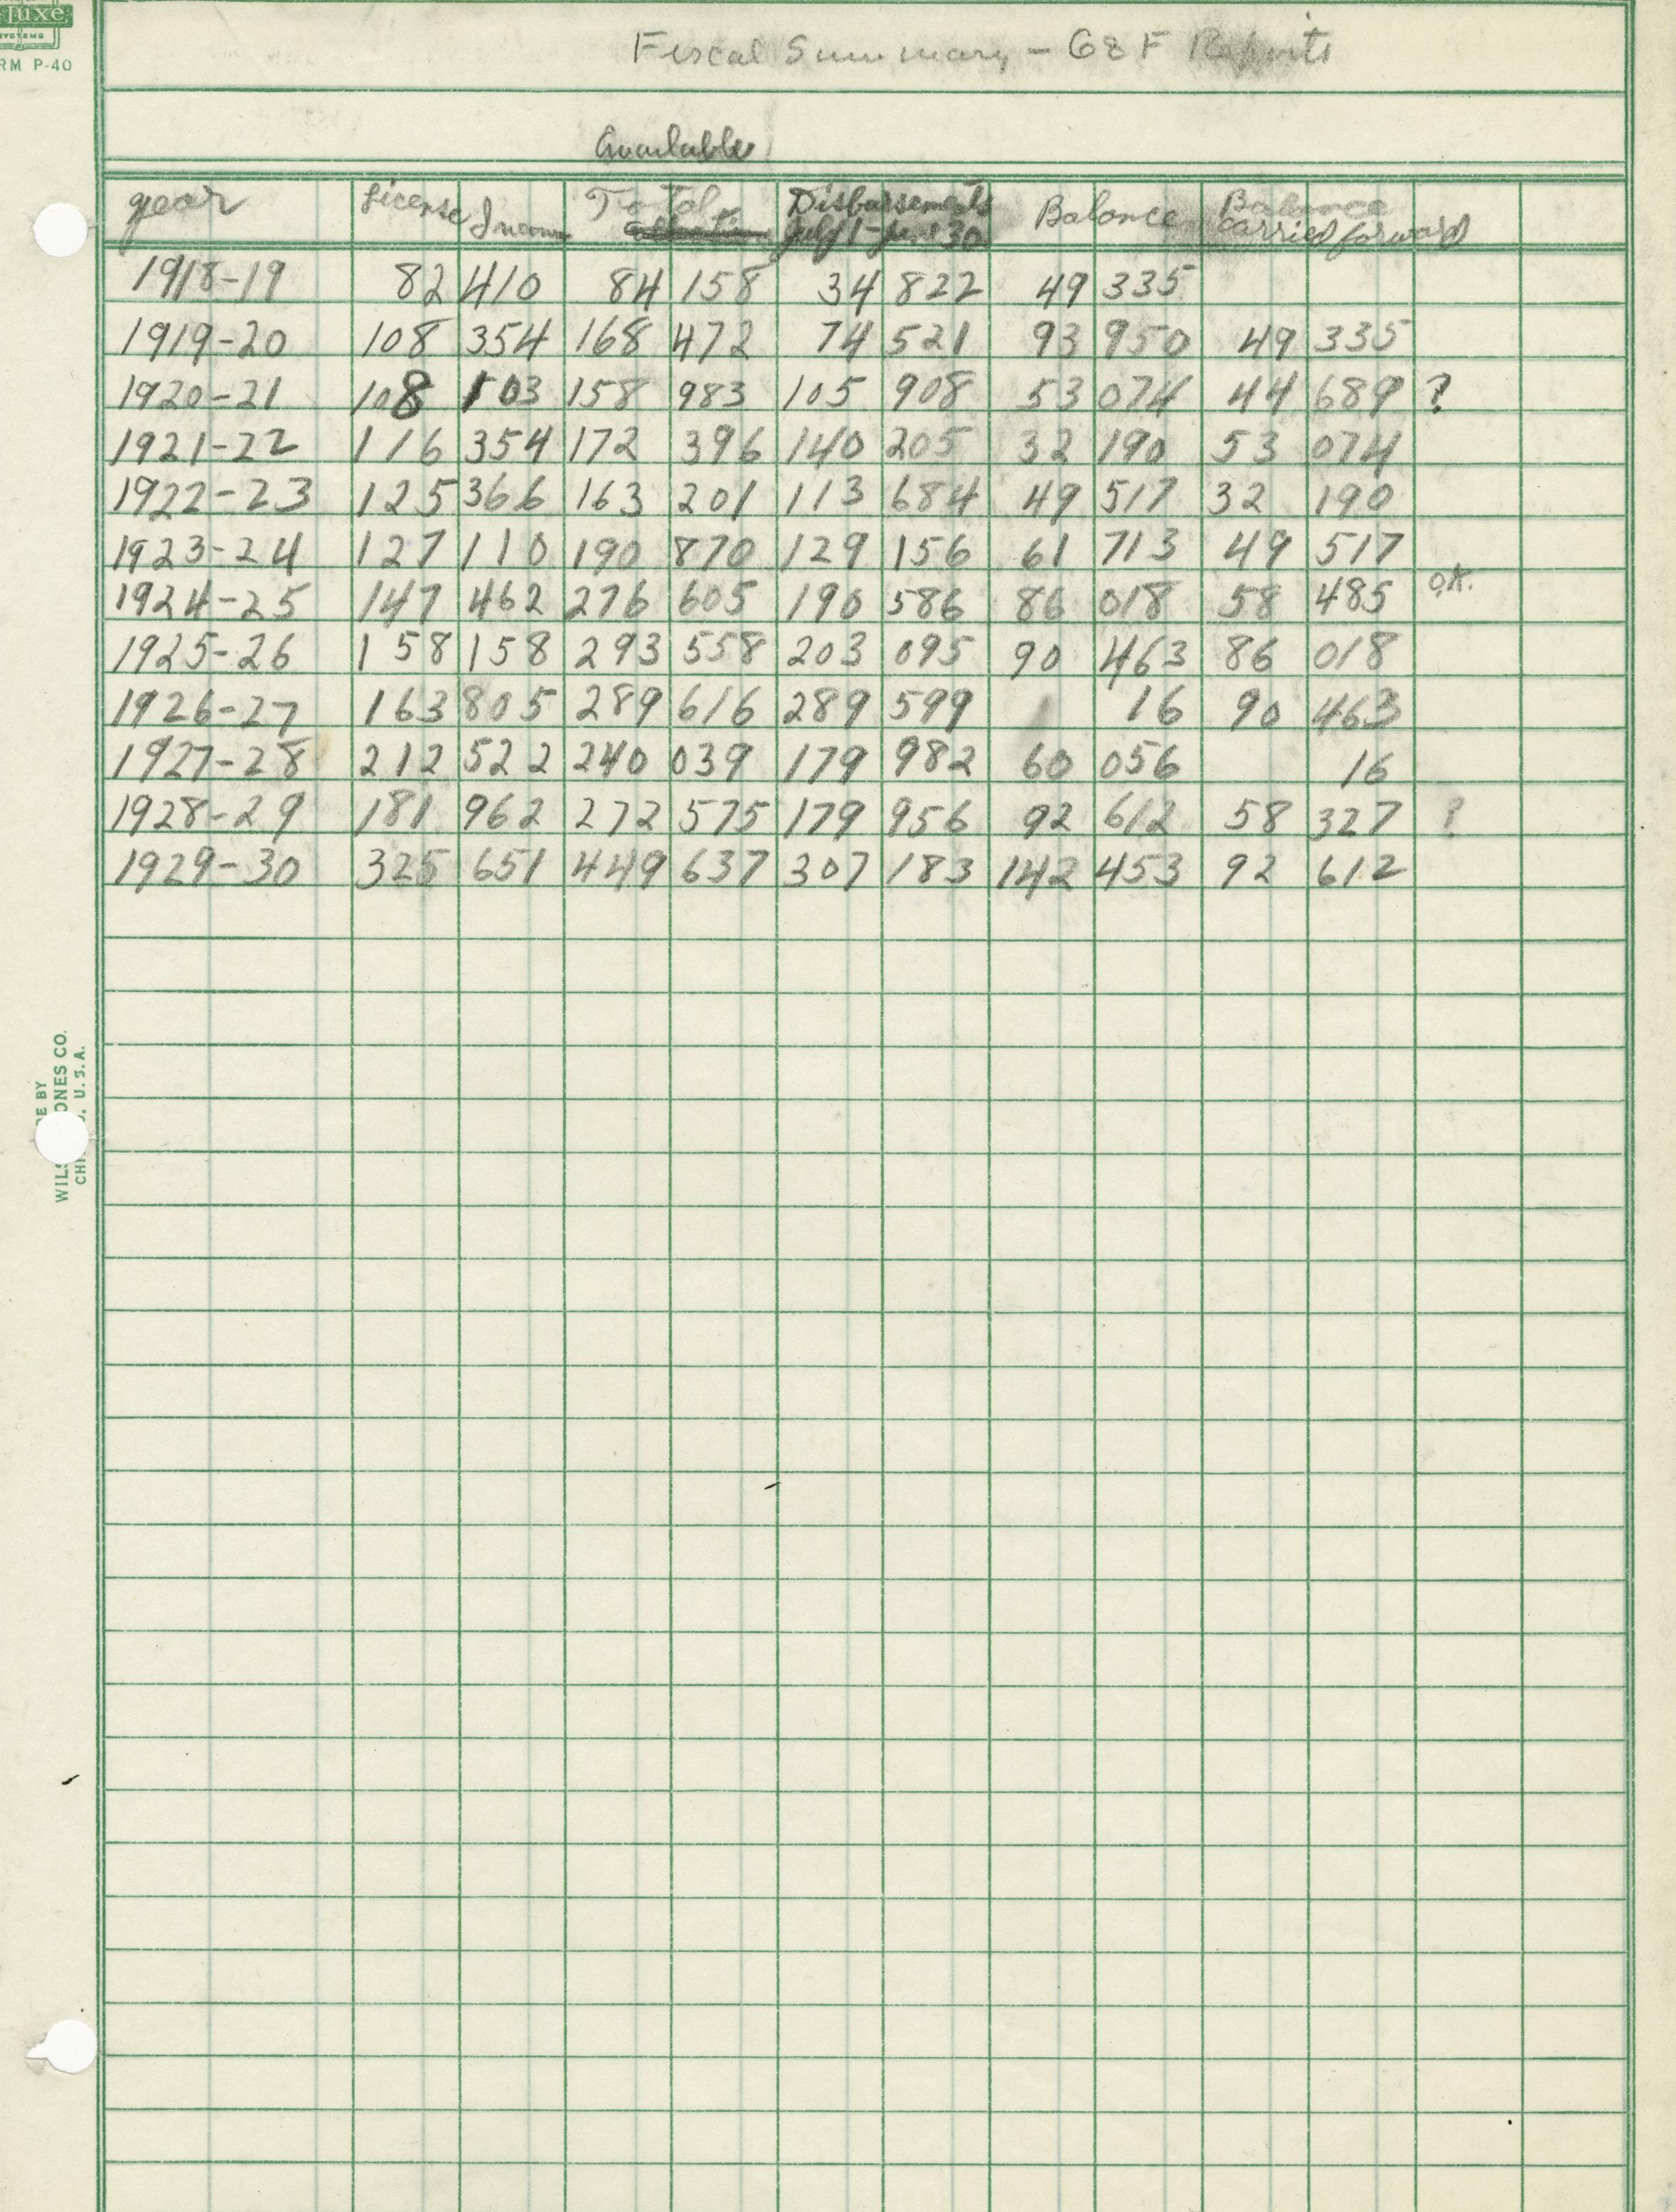 Juxe
SYSTEMS
RM P-40
Fiscal Summary - G & F Reports
Available
year License Income Total Disbursements July 1 - June 30 Balance Balance carried forward
1918-19 82 410 84 158 34 822 49 335
1919-20 108 354 168 472 74 521 93 950 49 335
1920-21 108 103 158 983 105 908 53 074 44 689 ?
1921-22 116 354 172 396 140 205 32 190 53 074
1922-23 125 366 163 201 113 684 49 517 32 190
1923-24 127 110 190 870 129 156 61 713 49 517
1924-25 147 462 276 605 190 586 86 018 58 485 O.K.
1925-26 158 158 293 558 203 095 90 463 86 018
1926-27 163 805 289 616 289 599 16 90 463
1927-28 212 522 240 039 179 982 60 056 16
1928-29 181 962 272 575 179 956 92 612 58 327 ?
1929-30 325 651 449 637 307 183 142 453 92 612
DE BY
WILS ONES CO.
CHI . U.S.A.